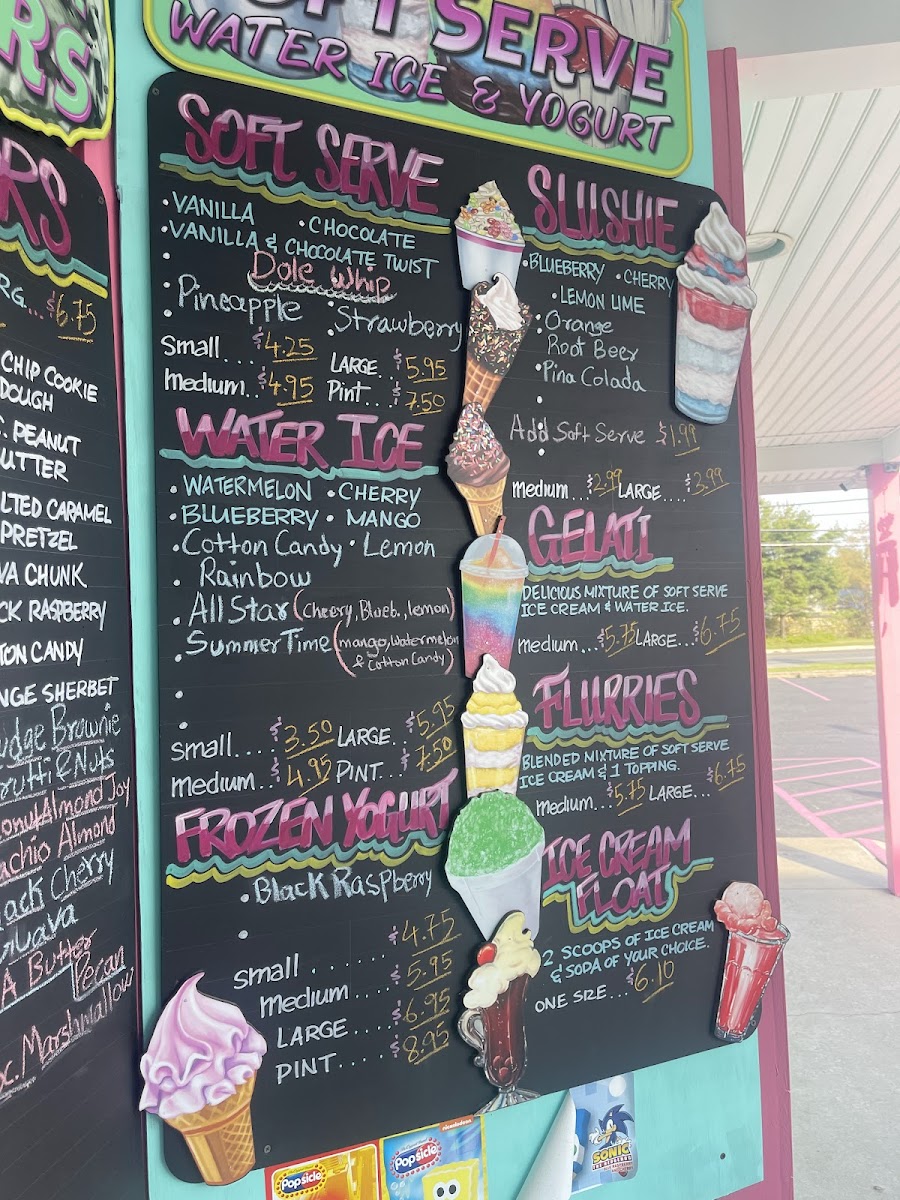 RS
RS
RG. $6.75
CHIP COOKIE
DOUGH
PEANUT
UTTER
LTED CARAMEL
PRETZEL
VA CHUNK
CK RASPBERRY
TON CANDY
NGE SHERBET
udge Brownie
rutti & Nuts
onut Almond Joy
achio Almond
lack Cherry
Guava
A Butter
Pecan
oc. Marshmallow
FT SERVE
WATER ICE & YOGURT
SOFT SERVE
• VANILLA • CHOCOLATE
• VANILLA & CHOCOLATE TWIST
Dole Whip
• Pineapple • Strawberry
Small... $4.25 LARGE.. $5.95
medium.. $4.95 Pint... $7.50
WATER ICE
• WATERMELON • CHERRY
• BLUEBERRY • MANGO
• Cotton Candy • Lemon
• Rainbow
• All Star (Cheery, Blueb., lemon)
• SummerTime (mango, Watermelon
& Cotton Candy)
small... $3.50 LARGE. $5.95
medium... $4.95 PINT... $7.50
FROZEN YOGURT
• Black Raspberry
small....... $4.75
medium.... $5.95
LARGE..... $6.95
PINT..... $8.95
SLUSHIE
• BLUEBERRY • CHERRY
• LEMON LIME
• Orange
Root Beer
• Pina Colada
Add Soft Serve $1.99
medium... $2.99 LARGE.... $3.99
GELATI
DELICIOUS MIXTURE OF SOFT SERVE
ICE CREAM & WATER ICE.
medium... $5.75 LARGE... $6.75
FLURRIES
BLENDED MIXTURE OF SOFT SERVE
ICE CREAM & 1 TOPPING.
medium... $5.75 LARGE... $6.75
ICE CREAM
FLOAT
2 SCOOPS OF ICE CREAM
& SODA OF YOUR CHOICE.
ONE SIZE... $6.10
Popsicle
Popsicle
nickelodeon
SONIC
THE HEDGEHOG